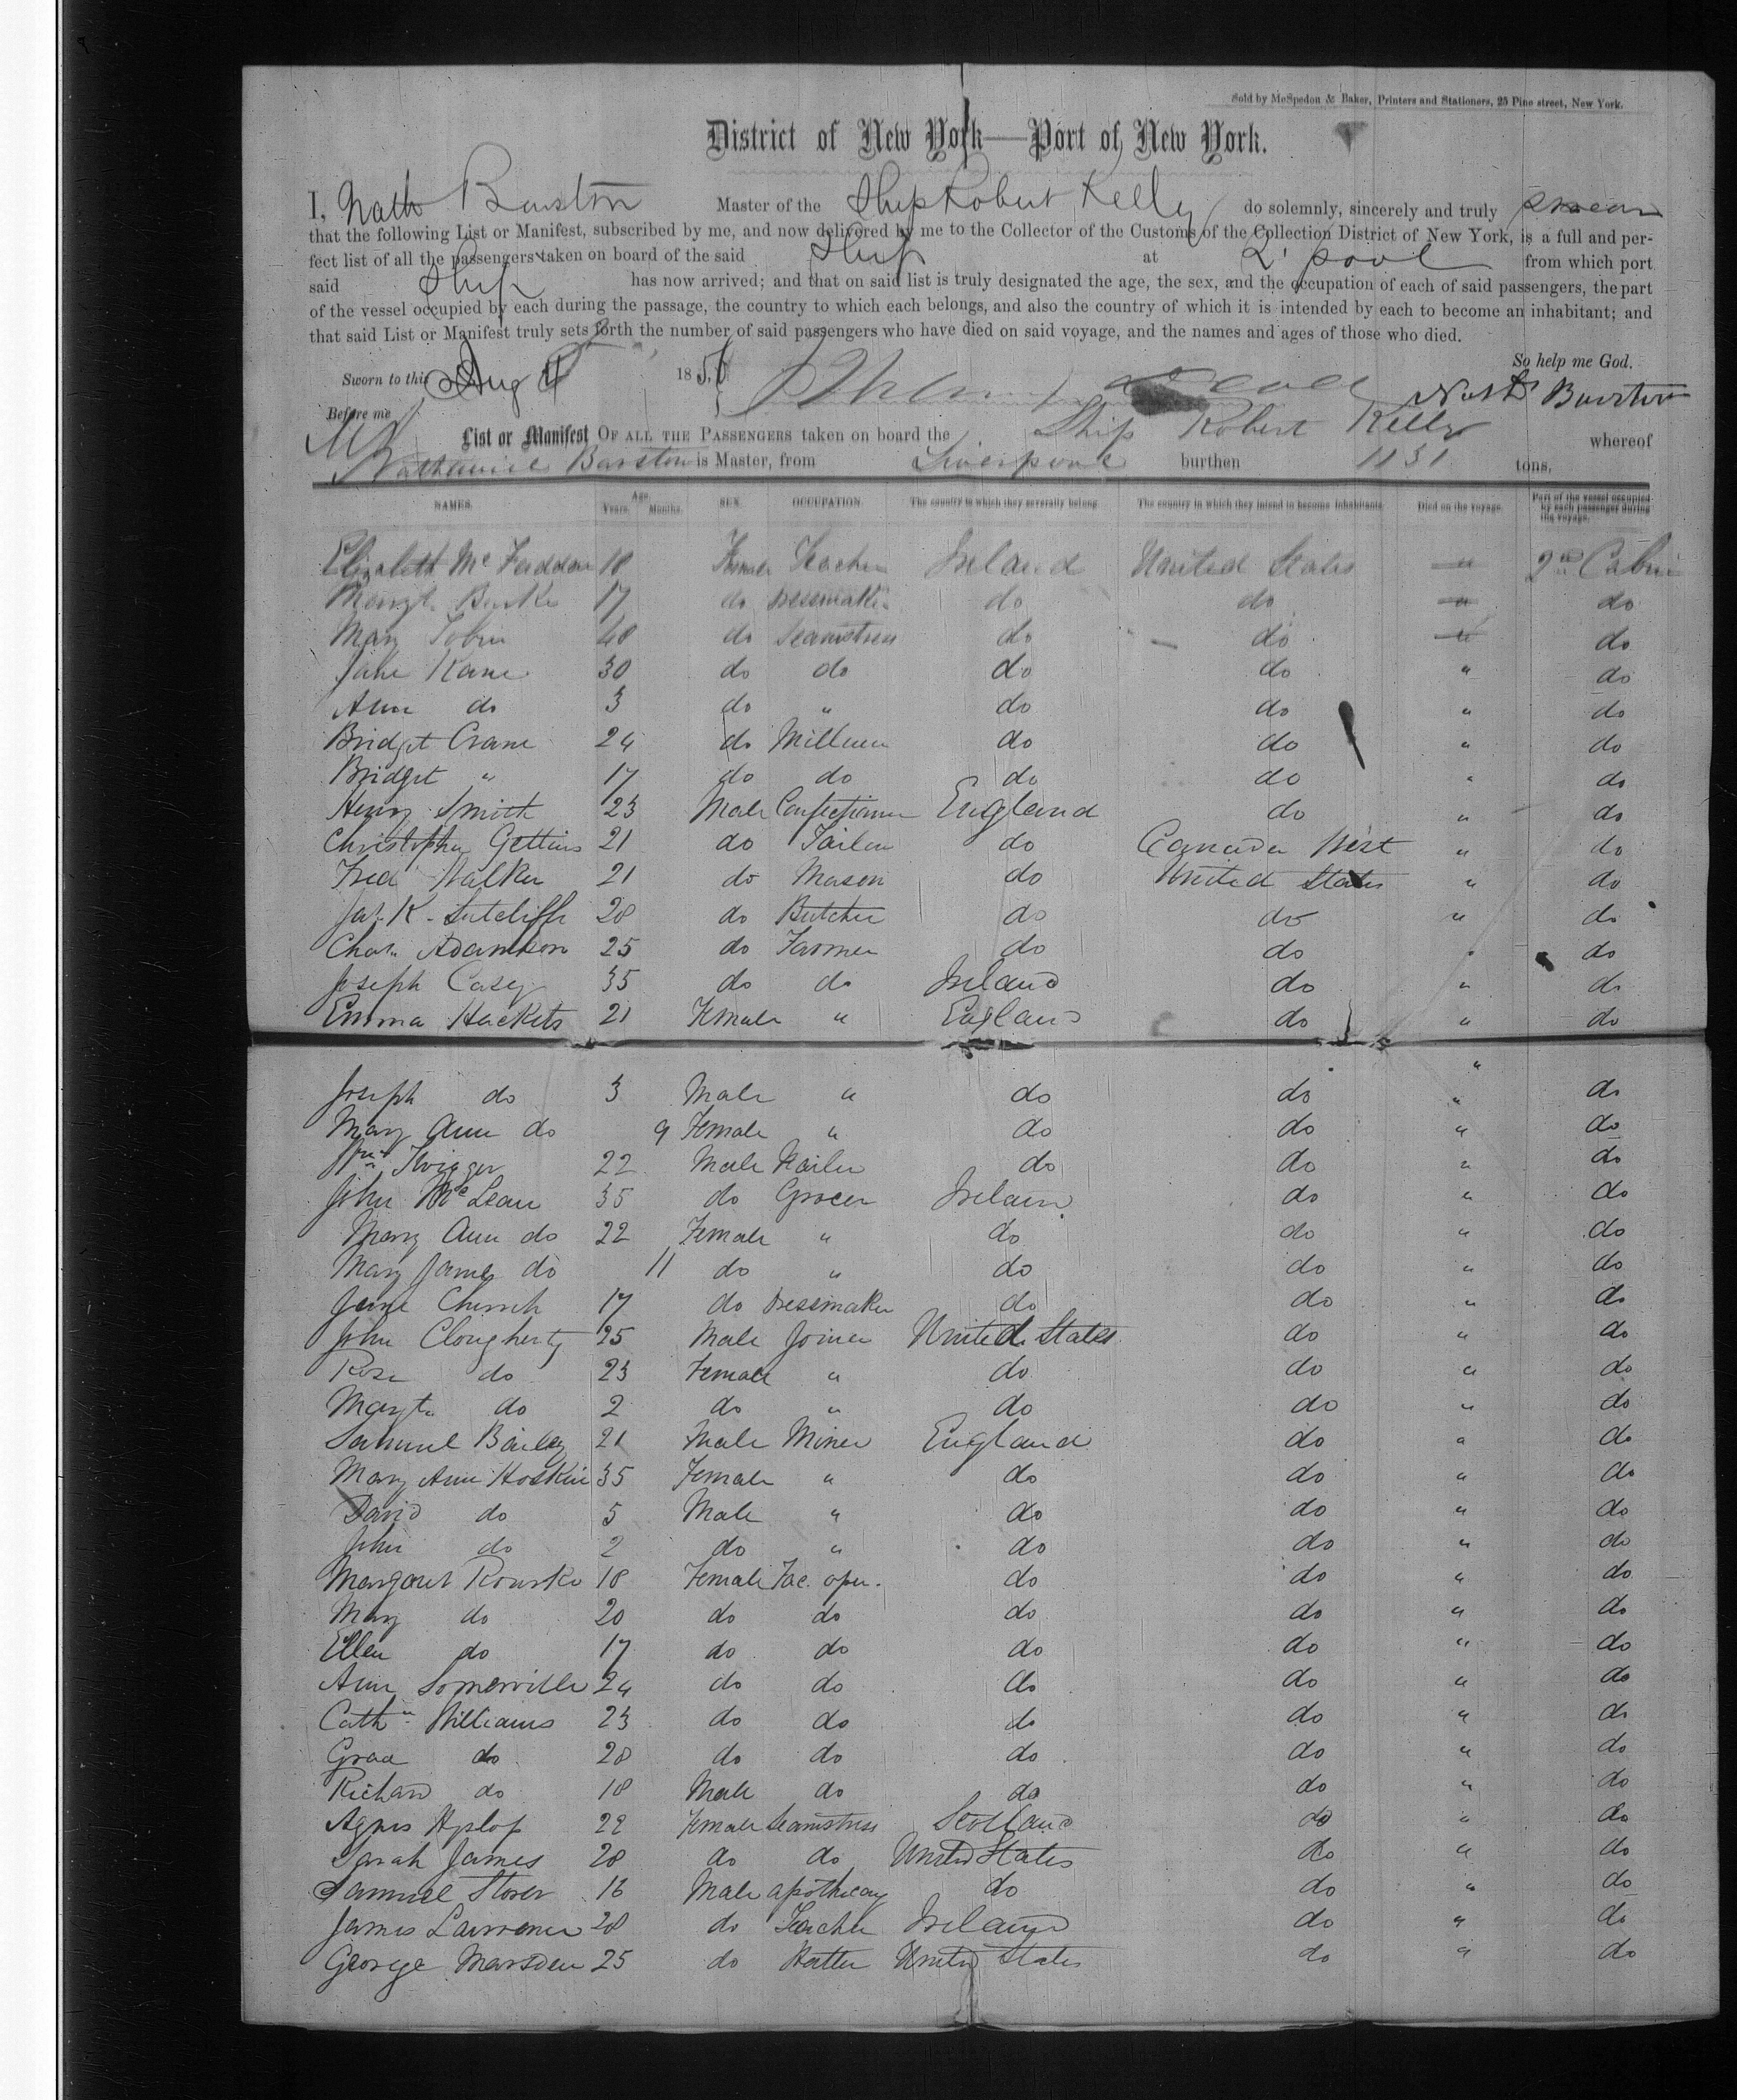 Sold by McSpedon & Baker, Printers and Stationers, 25 Pine street, New York.
District of New York—Port of New York.
I, Nath Barston Master of the Ship Robert Kelly do solemnly, sincerely and truly swear
that the following List or Manifest, subscribed by me, and now delivered by me to the Collector of the Customs of the Collection District of New York, is a full and per-
fect list of all the passengers taken on board of the said Ship at L'pool from which port
said Ship has now arrived; and that on said list is truly designated the age, the sex, and the occupation of each of said passengers, the part
of the vessel occupied by each during the passage, the country to which each belongs, and also the country of which it is intended by each to become an inhabitant; and
that said List or Manifest truly sets forth the number of said passengers who have died on said voyage, and the names and ages of those who died.
So help me God.
Sworn to this Aug 185
Before me Nath Barstow
List or Manifest OF ALL THE PASSENGERS taken on board the Ship Robert Kelly whereof
Nathaniel Barstow is Master, from Liverpool burthen 1131 tons.
NAMES. Age. Years. Months. SEX. OCCUPATION. The country to which they severally belong. The country in which they intend to become inhabitants. Died on the voyage. Part of the vessel occupied by each passenger during the voyage.
Elizabeth McFadden 18 Female Teacher Ireland United States " 2nd Cabin
Margt. Burke 17 do Dressmaker do do " do
Mary Tobin 40 do Seamstress do do " do
Jane Kane 30 do do do do " do
Ann do 3 do " do do " do
Bridget Crane 24 do Milliner do do " do
Bridget " 17 do do do do " do
Henry Smith 23 Male Confectioner England do " do
Christopher Gettins 21 do Tailor do Canada West " do
Fred Walker 21 do Mason do United States " do
Jas. K. Sutcliffe 28 do Butcher do do " do
Chas. Adamson 25 do Farmer do do " do
Joseph Casey 35 do do Ireland do " do
Emma Hackets 21 Female " England do " do
"
Joseph do 3 Male " do do " do
Mary Ann do 9 Female " do do " do
Wm Twigger 22 Male Nailer do do " do
John McLean 35 do Grocer Ireland do " do
Mary Ann do 22 Female " do do " do
Mary Jane do 11 do " do do " do
Jane Church 17 do Dressmaker do do " do
John Clougherty 25 Male Joiner United States do " do
Rose do 23 Female " do do " do
Margt. do 2 do " do do " do
Samuel Bailey 21 Male Miner England do " do
Mary Ann Hoskin 35 Female " do do " do
David do 5 Male " do do " do
John do 2 do " do do " do
Margaret Rourke 18 Female Fac. oper. do do " do
Mary do 20 do do do do " do
Ellen do 17 do do do do " do
Ann Somerville 24 do do do do " do
Cathn Williams 23 do do do do " do
Grace do 28 do do do do " do
Richard do 18 Male do do do " do
Agnes Hyslop 22 Female Seamstress Scotland do " do
Sarah James 28 do do United States do " do
Samuel Storer 16 Male apothecary do do " do
James Lawrence 28 do Teacher Ireland do " do
George Marsden 25 do Hatter United States do " do